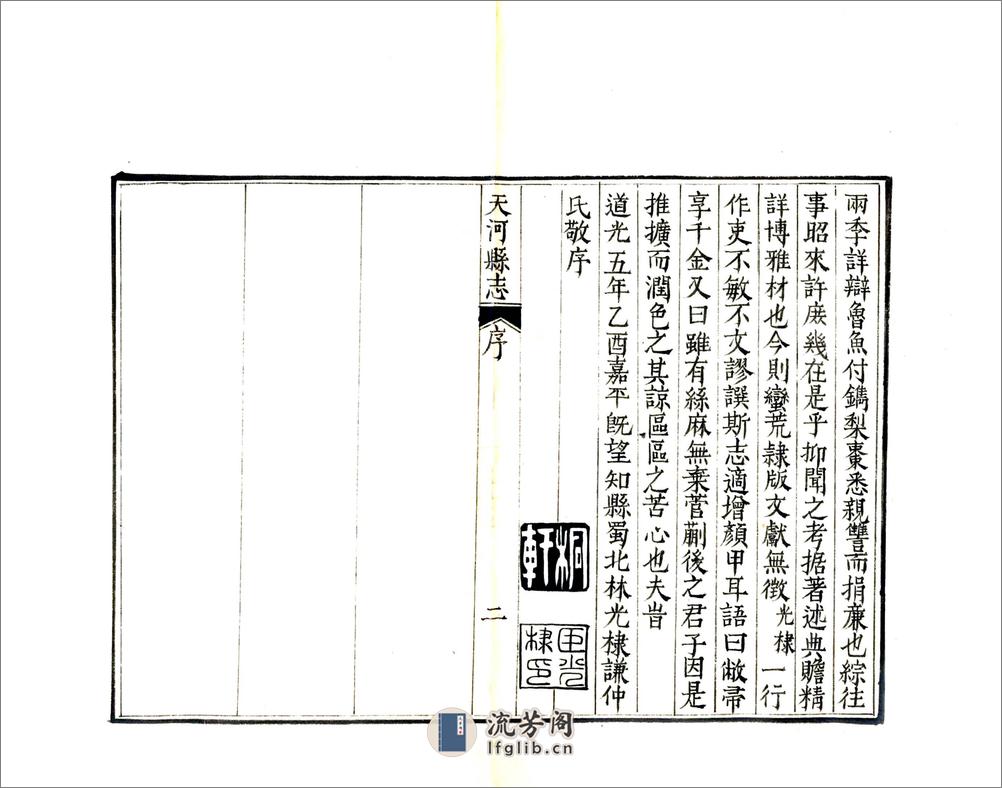 兩季詳辯魯魚付鐫梨棗悉親讐而捐亷也綜往
事昭來許庻幾在是乎抑聞之考据著述典贍精
詳博雅材也今則蠻荒隷版文獻無徵光棣一行
作吏不敏不文謬譔斯志適增顏甲耳語曰敝帚
享千金又曰雖有絲麻無棄菅蒯後之君子因是
推擴而潤色之其諒區區之苦心也夫旹
道光五年乙酉嘉平旣望知縣蜀北林光棣謙仲
氏敬序
桐軒
棣印
天河縣志
序
二
流芳阁
lfglib.cn